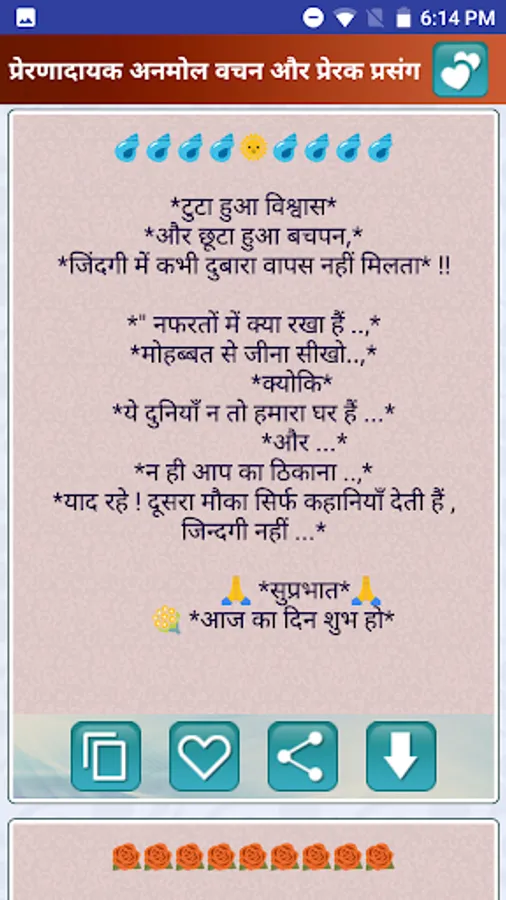 6:14 PM
प्रेरणादायक अनमोल वचन और प्रेरक प्रसंग
*टुटा हुआ विश्वास*
*और छूटा हुआ बचपन,*
*जिंदगी में कभी दुबारा वापस नहीं मिलता* !!
*" नफरतों में क्या रखा हैं ..,*
*मोहब्बत से जीना सीखो..,*
*क्योकि*
*ये दुनियाँ न तो हमारा घर हैं ...*
*और ...*
*न ही आप का ठिकाना ..,*
*याद रहे ! दूसरा मौका सिर्फ कहानियाँ देती हैं ,
जिन्दगी नहीं ...*
🙏 *सुप्रभात*🙏
💐 *आज का दिन शुभ हो*